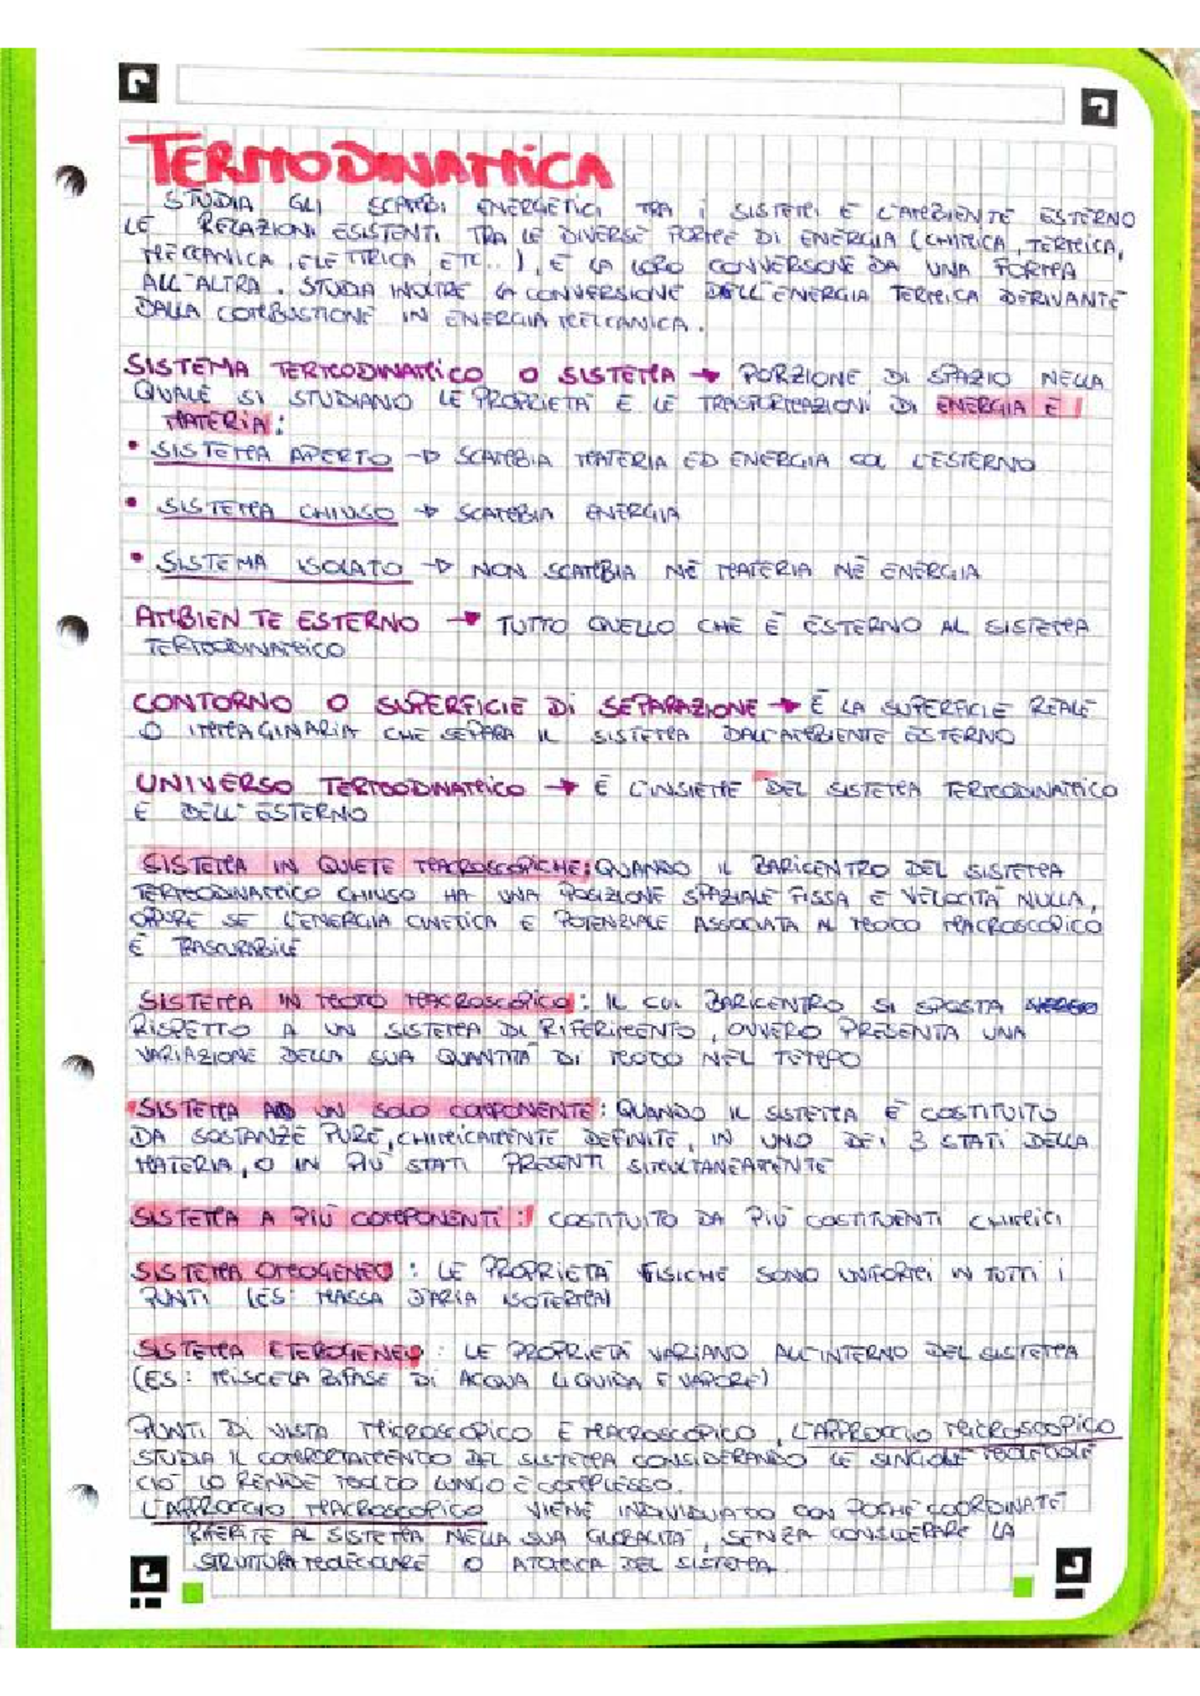 TERMODINAMICA
STUDIA GLI SCAMBI ENERGETICI TRA I SISTEMI E L'AMBIENTE ESTERNO
LE RELAZIONI ESISTENTI TRA LE DIVERSE FORME DI ENERGIA (CHIMICA, TERMICA,
MECCANICA, ELETTRICA, ETC...), E LA LORO CONVERSIONE DA UNA FORMA
ALL'ALTRA. STUDIA INOLTRE LA CONVERSIONE DELL'ENERGIA TERMICA DERIVANTE
DALLA COMBUSTIONE IN ENERGIA MECCANICA.
SISTEMA TERMODINAMICO O SISTEMA → PORZIONE DI SPAZIO NELLA
QUALE SI STUDIANO LE PROPRIETÀ E LE TRASFORMAZIONI DI ENERGIA E
MATERIA:
• SISTEMA APERTO → SCAMBIA MATERIA ED ENERGIA COL L'ESTERNO
• SISTEMA CHIUSO → SCAMBIA ENERGIA
• SISTEMA ISOLATO → NON SCAMBIA NÈ MATERIA NÈ ENERGIA
AMBIENTE ESTERNO → TUTTO QUELLO CHE È ESTERNO AL SISTEMA
TERMODINAMICO
CONTORNO O SUPERFICIE DI SEPARAZIONE → È LA SUPERFICIE REALE
O IMMAGINARIA CHE SEPARA IL SISTEMA DALL'AMBIENTE ESTERNO
UNIVERSO TERMODINAMICO → È L'INSIEME DEL SISTEMA TERMODINAMICO
E DELL'ESTERNO
SISTEMA IN QUIETE MACROSCOPICHE: QUANDO IL BARICENTRO DEL SISTEMA
TERMODINAMICO CHIUSO HA UNA POSIZIONE SPAZIALE FISSA E VELOCITÀ NULLA,
OPPURE SE L'ENERGIA CINETICA E POTENZIALE ASSOCIATA AL MOTO MACROSCOPICO
È TRASCURABILE
SISTEMA IN MOTO MACROSCOPICO: IL CUI BARICENTRO SI SPOSTA
RISPETTO A UN SISTEMA DI RIFERIMENTO, OVVERO PRESENTA UNA
VARIAZIONE DELLA SUA QUANTITÀ DI MOTO NEL TEMPO
SISTEMA AD UN SOLO COMPONENTE: QUANDO IL SISTEMA È COSTITUITO
DA SOSTANZE PURE, CHIMICAMENTE DEFINITE, IN UNO DEI 3 STATI DELLA
MATERIA, O IN PIÙ STATI PRESENTI SIMULTANEAMENTE
SISTEMA A PIÙ COMPONENTI: COSTITUITO DA PIÙ COSTITUENTI CHIMICI
SISTEMA OMOGENEO: LE PROPRIETÀ FISICHE SONO UNIFORMI IN TUTTI I
PUNTI (ES: MASSA D'ARIA ISOTERMA)
SISTEMA ETEROGENEO: LE PROPRIETÀ VARIANO ALL'INTERNO DEL SISTEMA
(ES: MISCELA BIFASE DI ACQUA LIQUIDA E VAPORE)
PUNTI DI VISTA MICROSCOPICO E MACROSCOPICO, L'APPROCCIO MICROSCOPICO
STUDIA IL COMPORTAMENTO DEL SISTEMA CONSIDERANDO LE SINGOLE MOLECOLE
CIÒ LO RENDE MOLTO LUNGO E COMPLESSO.
L'APPROCCIO MACROSCOPICO VIENE INDIVIDUATO CON POCHE COORDINATE
RIFERITE AL SISTEMA NELLA SUA GLOBALITÀ, SENZA CONSIDERARE LA
STRUTTURA MOLECOLARE O ATOMICA DEL SISTEMA.